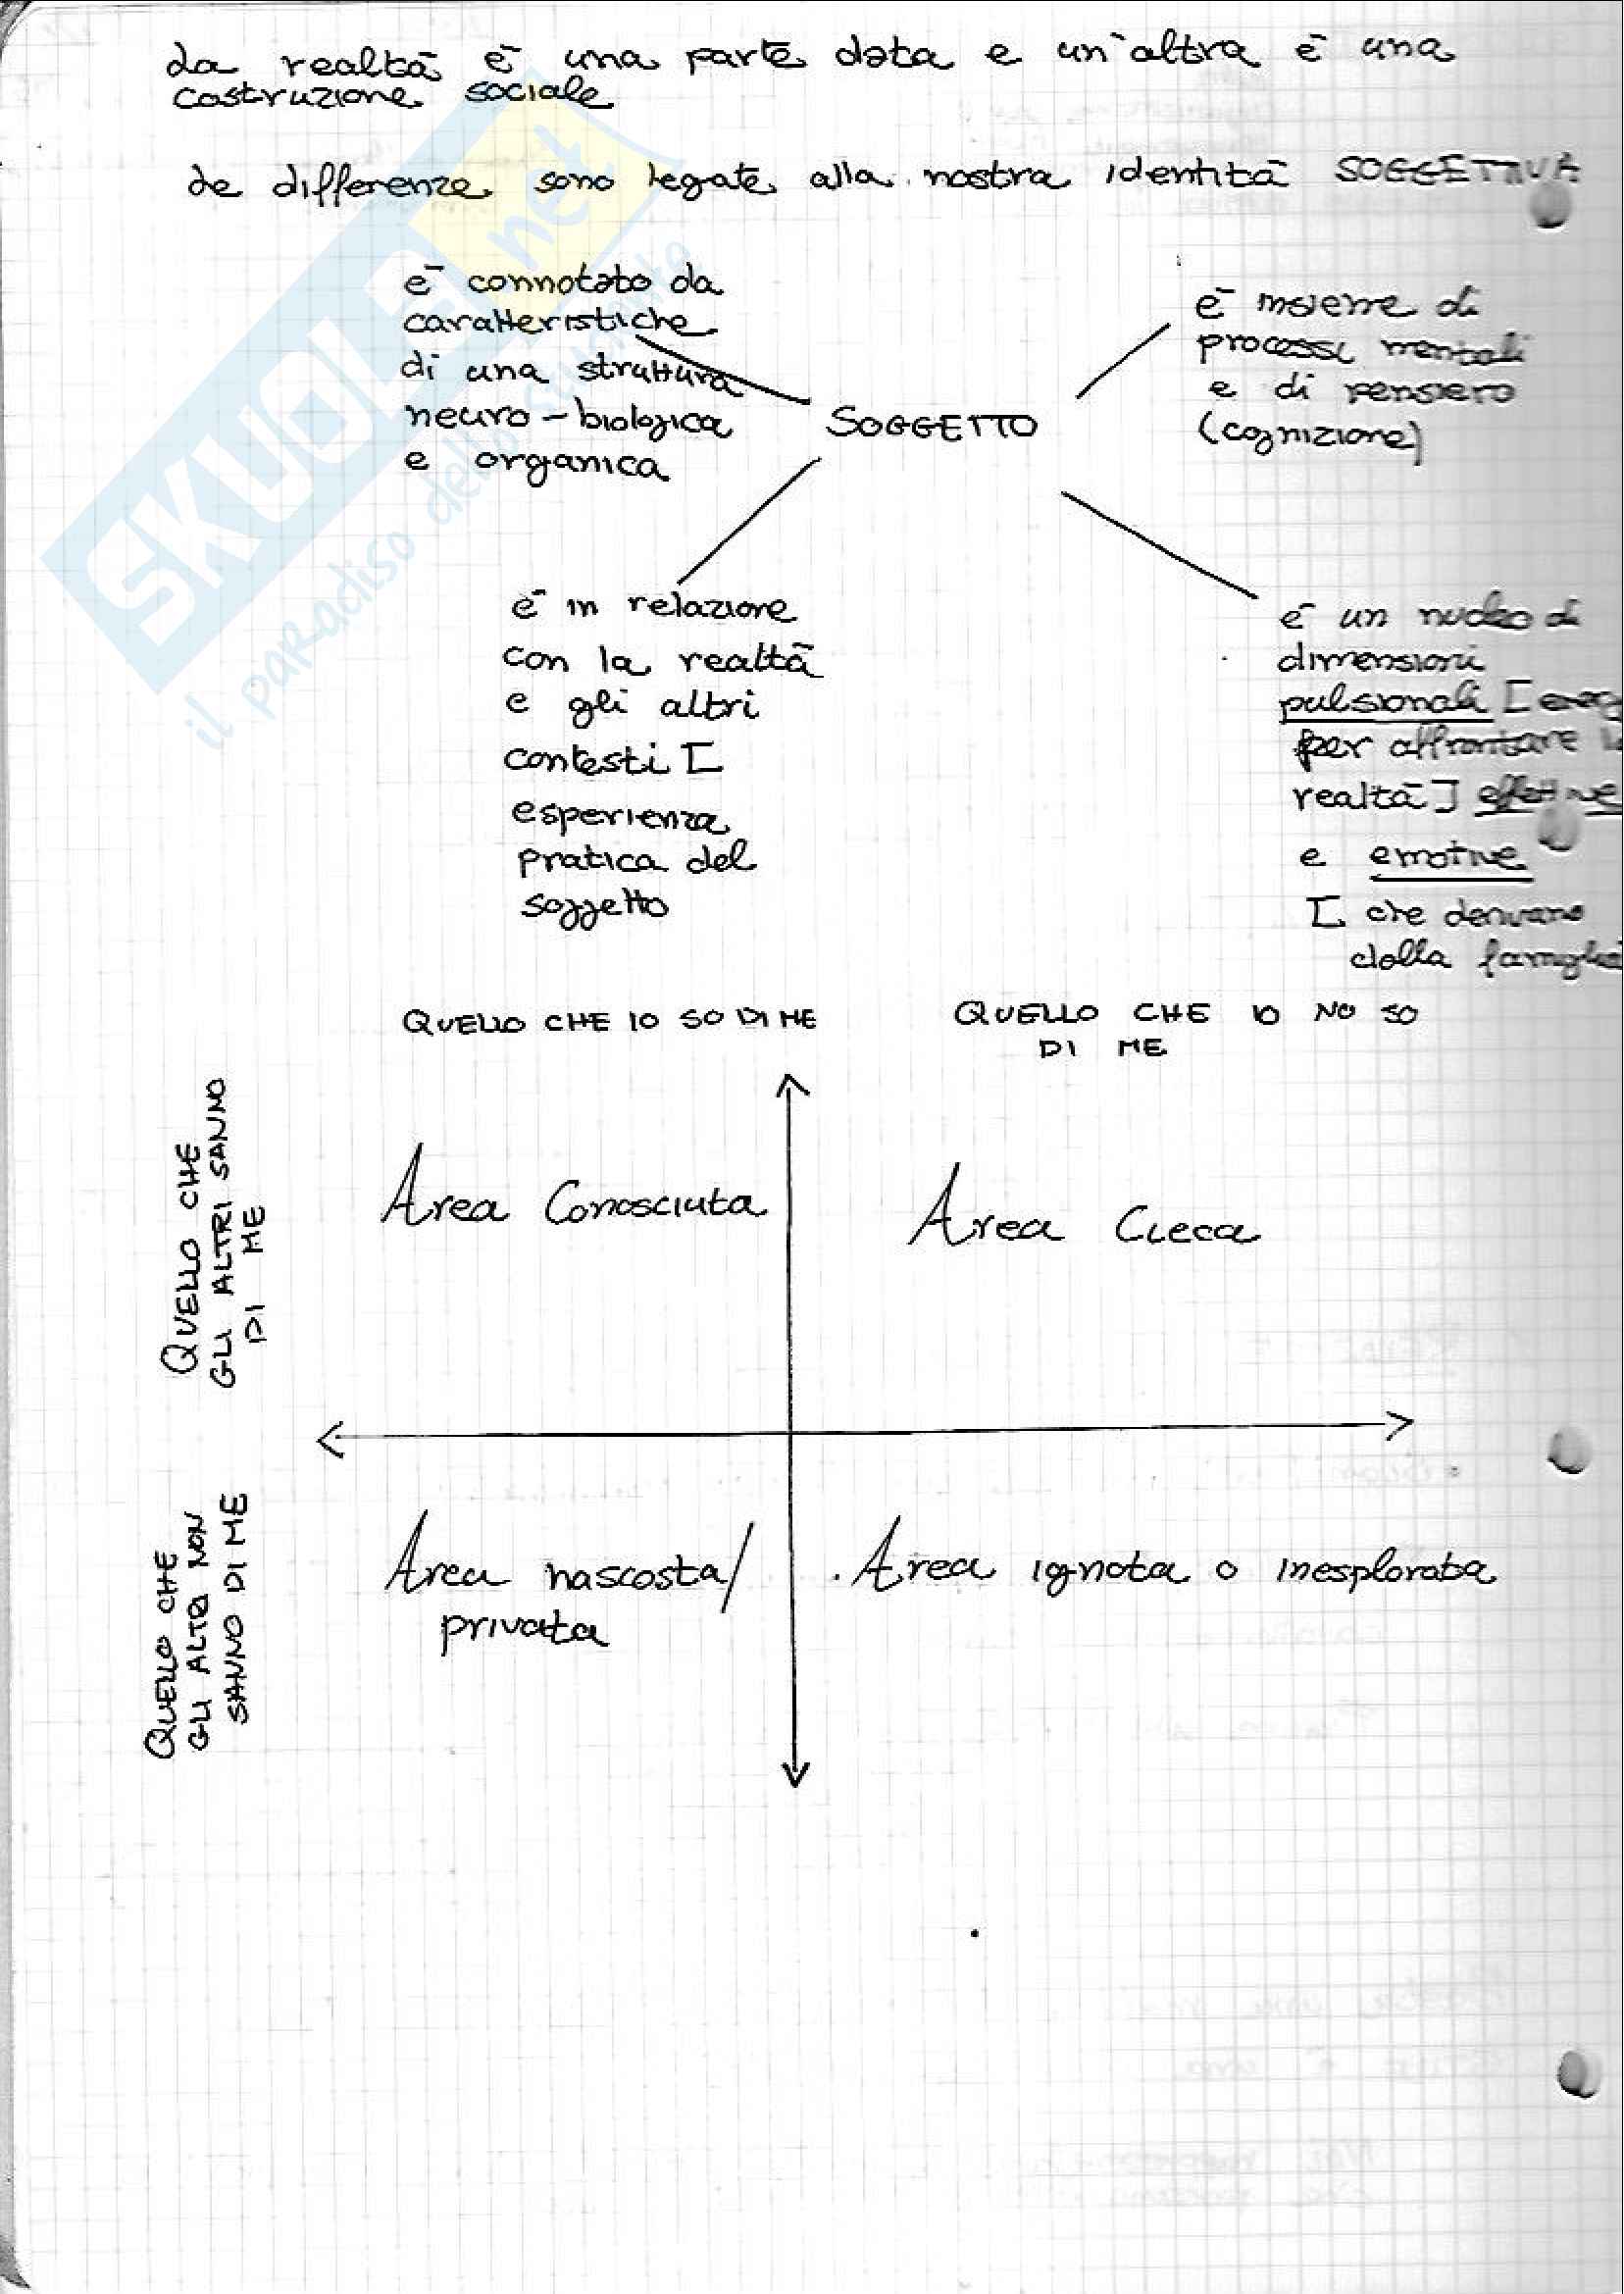 La realtà è una parte data e un'altra è una
costruzione sociale
Le differenze sono legate alla nostra identità SOGGETTIVA
è connotato da
caratteristiche
di una struttura
neuro-biologica
e organica
SOGGETTO
è insieme di
processi mentali
e di pensiero
(cognizione)
è in relazione
con la realtà
e gli altri
contesti [
esperienza
pratica del
soggetto
è un nucleo di
dimensioni
pulsionali [
per affrontare
realtà]
e emotive
[ che derivano
dalla
QUELLO CHE IO SO DI ME
QUELLO CHE IO NO SO
DI ME
QUELLO CHE
GLI ALTRI SANNO
DI ME
Area Conosciuta
Area Cieca
QUELLO CHE
GLI ALTRI NON
SANNO DI ME
Area nascosta/
privata
Area ignota o inesplorata
SKUOLA.net
il paradiso dello studente